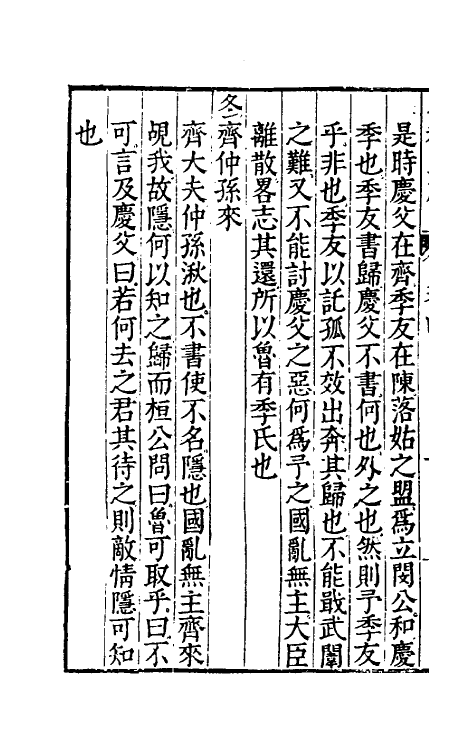 是時慶父在齊季友在陳落姑之盟爲立閔公和慶
季也季友書歸慶父不書何也外之也然則予季友
乎非也季友以託孤不效出奔其歸也不能戢武闈
之難又不能討慶父之惡何爲予之國亂無主大臣
離散畧志其還所以魯有季氏也
冬齊仲孫來
齊大夫仲孫湫也不書使不名隱也國亂無主齊來
覘我故隱何以知之歸而桓公問曰魯可取乎曰不
可言及慶父曰若何去之君其待之則敵情隱可知
也